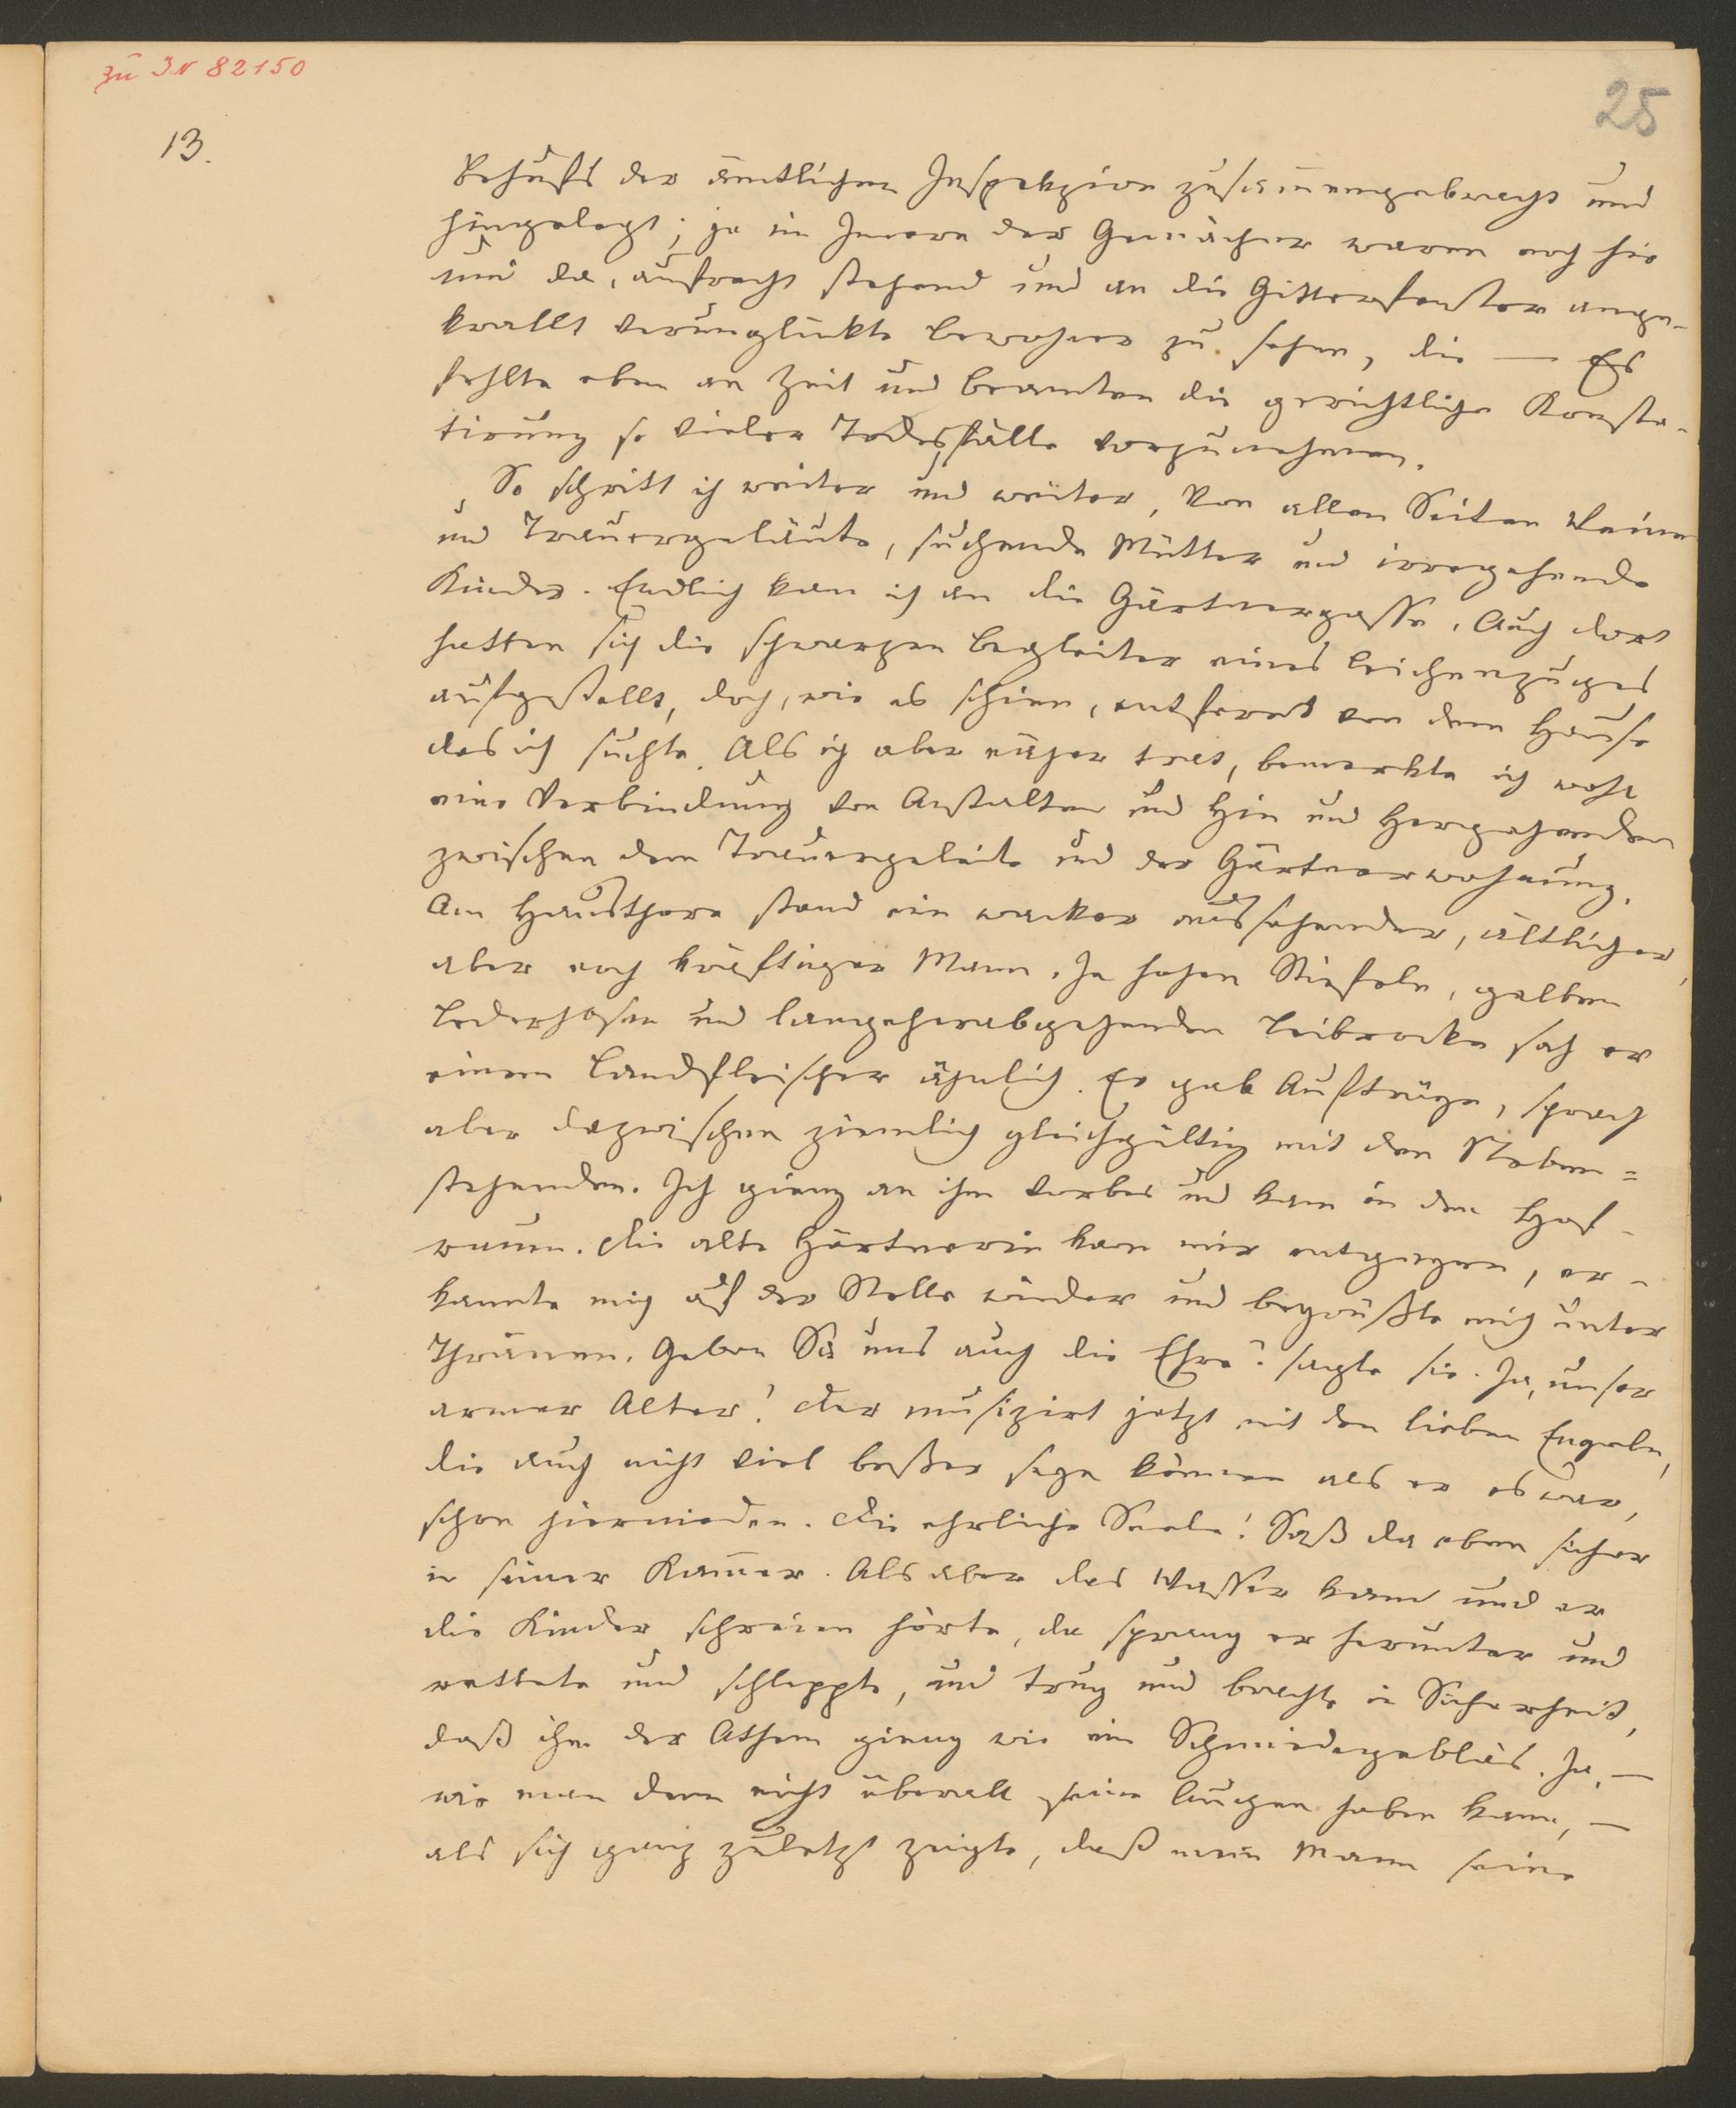 zu IN 82150
25
13.
Behufs der ämtlichen Inspekzion zusam̄engebracht und
hingelegt; ja im Innern der Gemächer waren noch hie
und da, aufrecht stehend und an die Gitterfenster ange-
krallt verunglückte Bewohner zu sehen, die — Es
fehlte eben an Zeit und Beamten die gerichtliche Konsta-
tirung so vieler Todesfälle vorzunehmen.
So schritt ich weiter und weiter, Von allen Seiten Weinen
und Trauergeläute, suchende Mütter und irregehende
Kinder. Endlich kam ich an die Gärtnergasse. Auch dort
hatten sich die schwarzen Begleiter eines Leichenzuges
aufgestellt, doch, wie es schien, entfernt von dem Hause
das ich suchte. Als ich aber näher trat, bemerkte ich wohl
eine Verbindung von Anstalten und Hin und Hergehenden
zwischen dem Trauergeleite und der Gärtnerwohnung.
Am Hausthore stand ein wacker aussehender, ältlicher,
aber noch kräftiger Mann. In hohen Stiefeln, gelben
Lederhosen und langherabgehendem Leibrocke sah er
einem Landfleischer ähnlich. Er gab Aufträge, sprach
aber dazwischen ziemlich gleichgültig mit den Neben=
stehenden. Ich gieng an ihm vorbei und kam in den Hof-
raum. Die alte Gärtnerin kam mir entgegen, er-
kannte mich auf der Stelle wieder und begrüßte mich unter
Thränen. Geben Sie uns auch die Ehre? sagte sie. Ja, unser
armer Alter! Der musizirt jetzt mit den lieben Engeln,
die auch nicht viel beßer seyn können als er es war,
schon hiernieden. Die ehrliche Seele! Saß da oben sicher
in seiner Kam̄er. Als aber das Wasser kam und er
die Kinder schreien hörte, da sprang er herunter und
rettete und schleppte, und trug und brachte in Sicherheit,
daß ihm der Athem gieng wie ein Schmiedegebläs. Ja, —
wie man denn nicht überall seine Augen haben kann, —
als sich ganz zuletzt zeigte, daß mein Mann seine